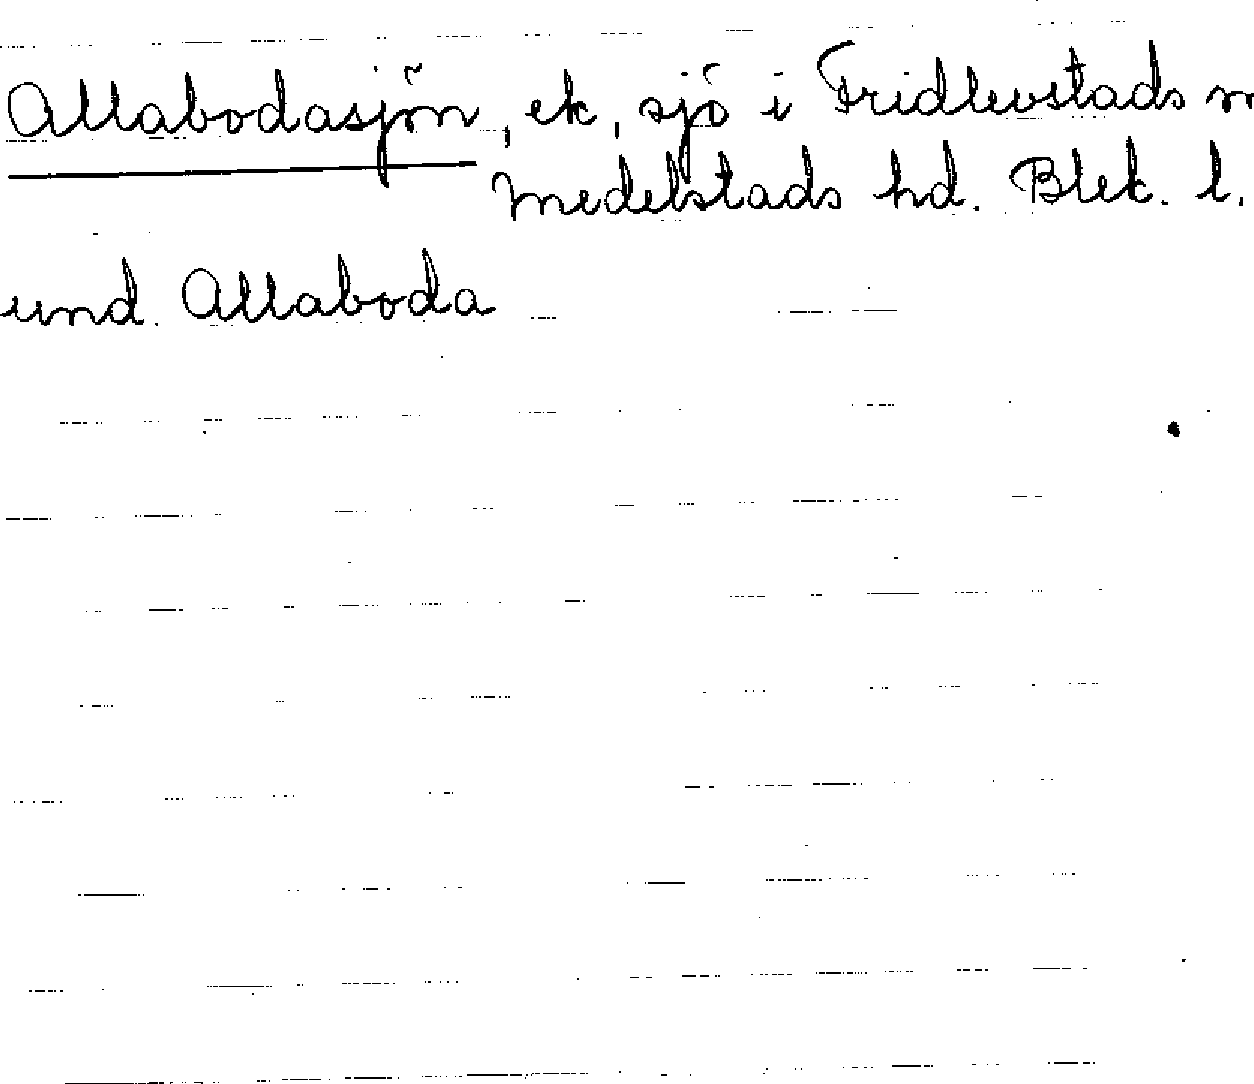 Allabodasjön, ek, sjö i Fridlevstads
Medelstads hd. Blek. l.
und. Allaboda